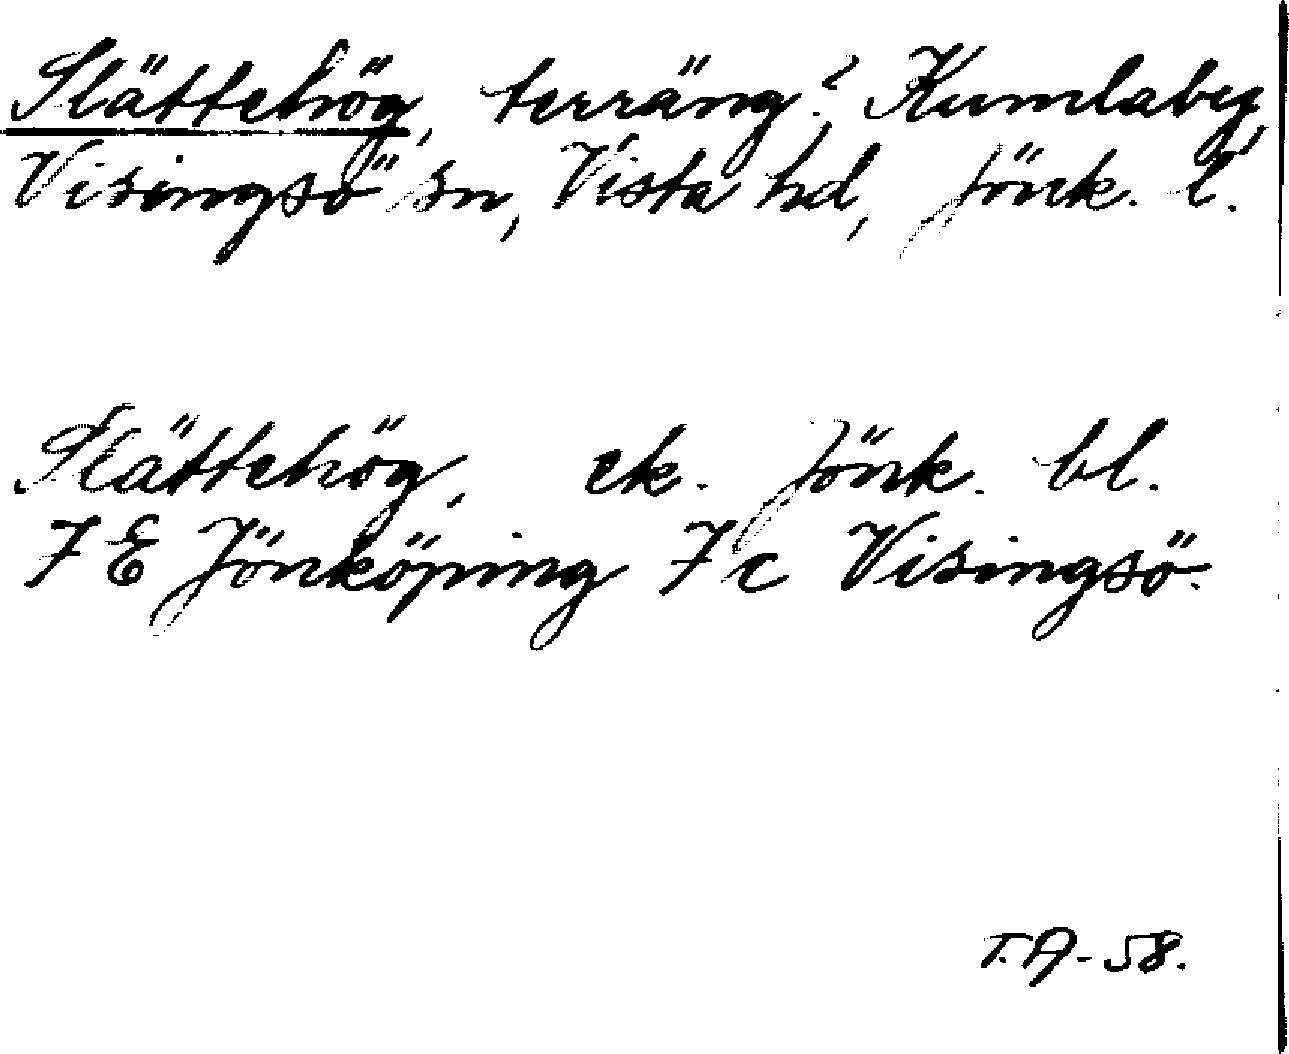 Slättehög, terräng?, Kumlaby,
Visingsö sn, Vista hd, Jönk. l.
Slättehög, ek. Jönk. bl.
7 E Jönköping 7 c Visingsö.
T.A-58.